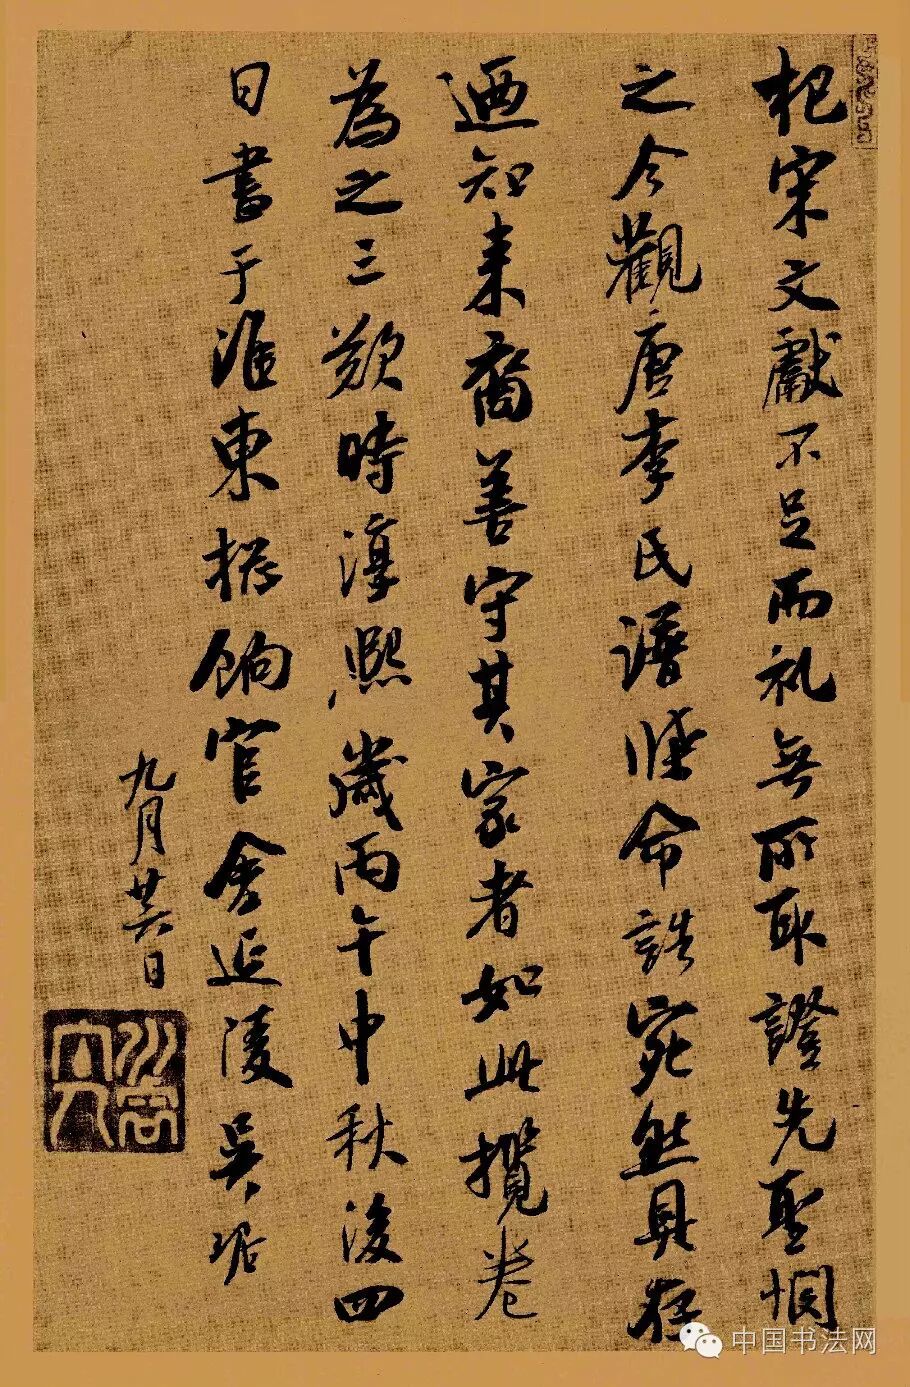 杞宋文獻不足而礼無所取證先聖憫
之今觀唐李氏譜牒命誥宛然具存
迺知來裔善守其家者如此攬卷
為之三歎時淳熙歲丙午中秋後四
日書于淮東總餉官舍延陵吳琚
九月廿六日
中国书法网